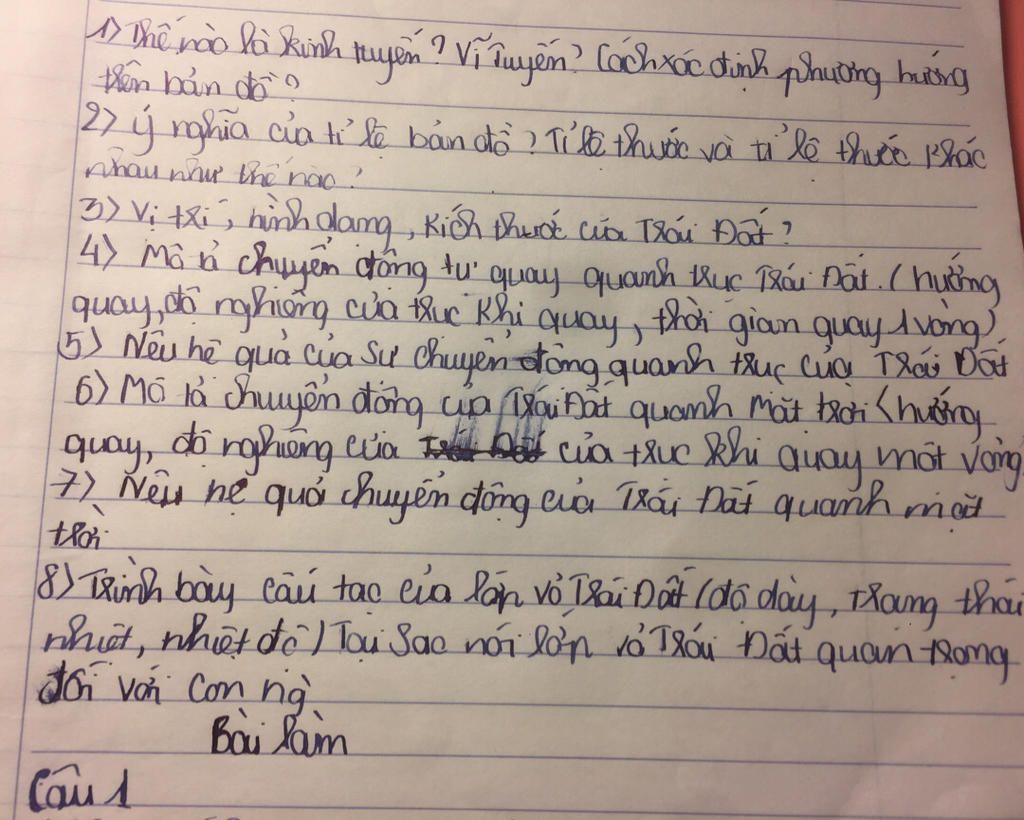 1) Thế nào là kinh tuyến? Vĩ Tuyến? Cách xác định phương hướng
trên bản đồ?
2) Ý nghĩa của tỉ lệ bản đồ? Tỉ lệ thước và tỉ lệ thước khác
nhau như thế nào?
3) Vị trí, hình dạng, kích thước của Trái Đất?
4) Mô tả chuyển động tự quay quanh trục Trái Đất. (hướng
quay, độ nghiêng của trục khi quay, thời gian quay 1 vòng)
5) Nêu hệ quả của sự chuyển động quanh trục của Trái Đất
6) Mô tả chuyển động của Trái Đất quanh mặt trời (hướng
quay, độ nghiêng của của trục khi quay một vòng
7) Nêu hệ quả chuyển động của Trái Đất quanh mặt
trời
8) Trình bày cấu tạo của lớp vỏ Trái Đất (độ dày, trạng thái
nhiệt, nhiệt độ) Tại sao nói lớp vỏ Trái Đất quan trọng
đối với con ng
Bài làm
Câu 1